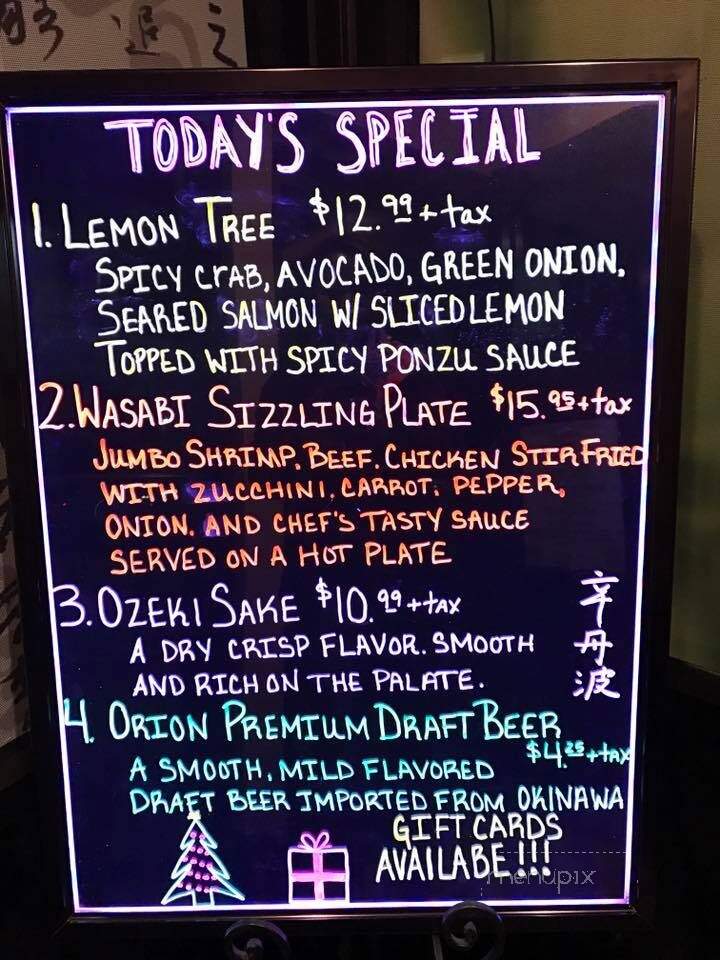 TODAY'S SPECIAL
1. LEMON TREE $12.99 + tax
SPICY CRAB, AVOCADO, GREEN ONION,
SEARED SALMON W/ SLICED LEMON
TOPPED WITH SPICY PONZU SAUCE
2. WASABI SIZZLING PLATE $15.95 + tax
JUMBO SHRIMP, BEEF, CHICKEN STIR FRIED
WITH ZUCCHINI, CARROT, PEPPER,
ONION, AND CHEF'S TASTY SAUCE
SERVED ON A HOT PLATE
3. OZEKI SAKE $10.99 + TAX
A DRY CRISP FLAVOR. SMOOTH
AND RICH ON THE PALATE.
辛丹波
4. ORION PREMIUM DRAFT BEER
$4.25 + TAX
A SMOOTH, MILD FLAVORED
DRAFT BEER IMPORTED FROM OKINAWA
GIFT CARDS
AVAILABE !!!
menupix